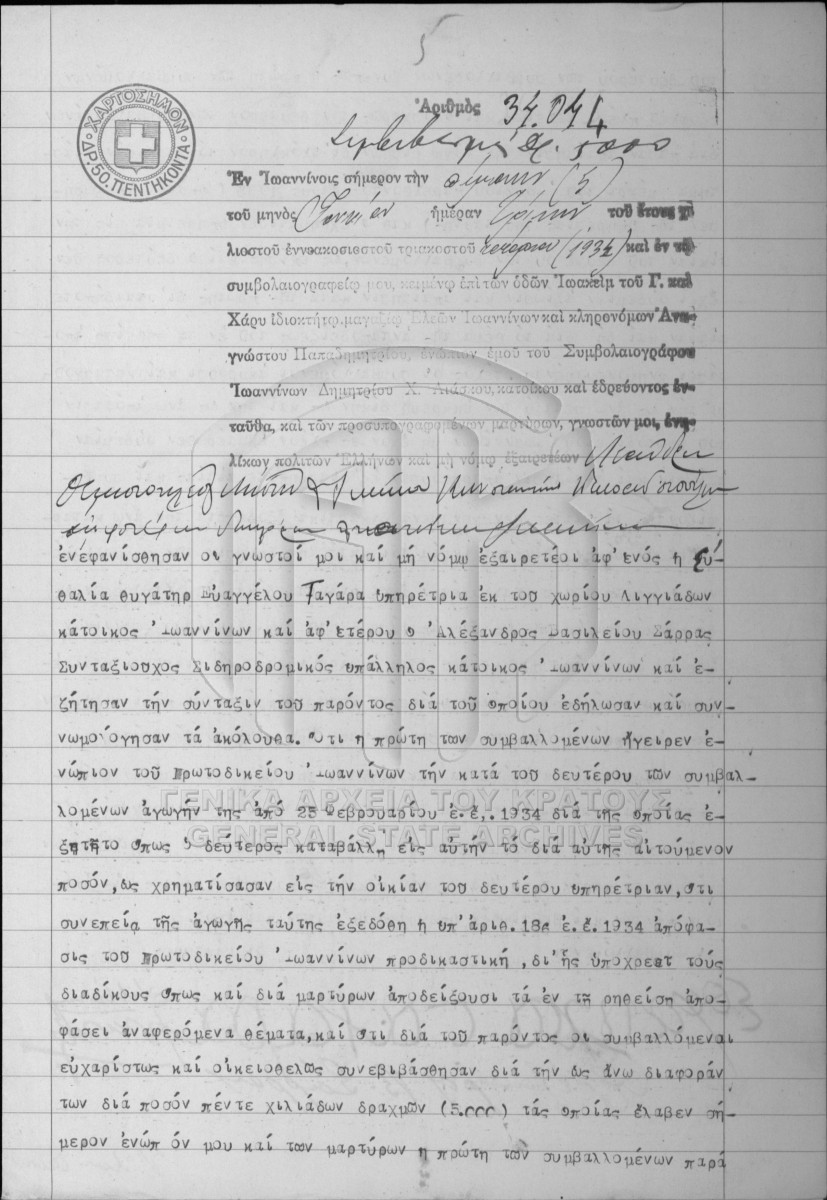 5
Ἀριθμὸς 34.044
Συμβιβασμός Δρ. 5000
ΧΑΡΤΟΣΗΜΟΝ
ΔΡ. 50. ΠΕΝΤΗΚΟΝΤΑ
Ἐν Ἰωαννίνοις σήμερον τὴν πέμπτην (5)
τοῦ μηνὸς Ἰουνίου ἡμέραν Τρίτην τοῦ ἔτους χι-
λιοστοῦ ἐννεακοσιοστοῦ τριακοστοῦ τετάρτου (1934) καὶ ἐν τῷ
συμβολαιογραφείῳ μου, κειμένῳ ἐπὶ τῶν ὁδῶν Ἰωακεὶμ τοῦ Γ. καὶ
Χάρυ ἰδιοκτήτῳ μαγαζίῳ Ἐλεῶν Ἰωαννίνων καὶ κληρονόμων Ἀνα-
γνώστου Παπαδημητρίου, ἐνώπιον ἐμοῦ τοῦ Συμβολαιογράφου
Ἰωαννίνων Δημητρίου Χ. Λιάσκου, κατοίκου καὶ ἑδρεύοντος ἐν-
ταῦθα, καὶ τῶν προσυπογραφομένων μαρτύρων, γνωστῶν μοι, ἐνη-
λίκων πολιτῶν Ἑλλήνων καὶ μὴ νόμῳ ἐξαιρετέων
ἐνεφανίσθησαν οι γνωστοί μοι καί μή νόμῳ ἐξαιρετέοι ἀφ'ἑνός η Εὐ-
θαλία θυγάτηρ Εὐαγγέλου Ταγάρα υπηρέτρια ἐκ του χωρίου Λιγγιάδων
κάτοικος Ἰωαννίνων καί ἀφ'ετέρου ο Ἀλέξανδρος Βασιλείου Σάρρας
Συνταξιουχος Σιδηροδρομικός υπάλληλος κάτοικος Ἰωαννίνων καί ἐ-
ζήτησαν τήν σύνταξιν τοῦ παρόντος διά τοῦ οποίου ἐδήλωσαν καί συν-
νωμολόγησαν τά ἀκόλουθα. Οτι η πρώτη των συμβαλλομένων ἤγειρεν ἐ-
νώπιον τοῦ Πρωτοδικείου Ἰωαννίνων τήν κατά τοῦ δευτέρου τῶν συμβαλ-
λομένων ἀγωγήν της ἀπό 25 Φεβρουαρίου ἐ.ἔ,. 1934 διά τῆς οποίας ἐ-
ζητεῖτο οπως ο δεύτερος καταβάλλῃ εἰς αὐτήν τό διά αὐτῆς αἰτούμενον
ποσόν, ὡς χρηματίσασαν εἰς τήν οἰκίαν τοῦ δευτέρου υπηρέτριαν, οτι
συνεπείᾳ τῆς ἀγωγῆς ταύτης ἐξεδόθη η υπ'ἀριθ. 186 ἐ.ἔ. 1934 ἀπόφα-
σις τοῦ Πρωτοδικείου Ἰωαννίνων προδικαστική, δι'ἧς ὑποχρεοῖ τούς
διαδίκους οπως καί διά μαρτύρων ἀποδείξουσι τά ἐν τῇ ρηθείσῃ ἀπο-
φάσει ἀναφερόμενα θέματα, καί οτι διά τοῦ παρόντος οι συμβαλλόμεναι
εὐχαρίστως καί οἰκειοθελῶς συνεβιβάσθησαν διά τήν ὡς ἄνω διαφοράν
των διά ποσόν πέντε χιλιάδων δραχμῶν (5.000) τάς οποίας ἔλαβεν σή-
μερον ἐνώπ όν μου καί των μαρτύρων η πρώτη τῶν συμβαλλομένων παρά
ΓΕΝΙΚΑ ΑΡΧΕΙΑ ΤΟΥ ΚΡΑΤΟΥΣ
GENERAL STATE ARCHIVES